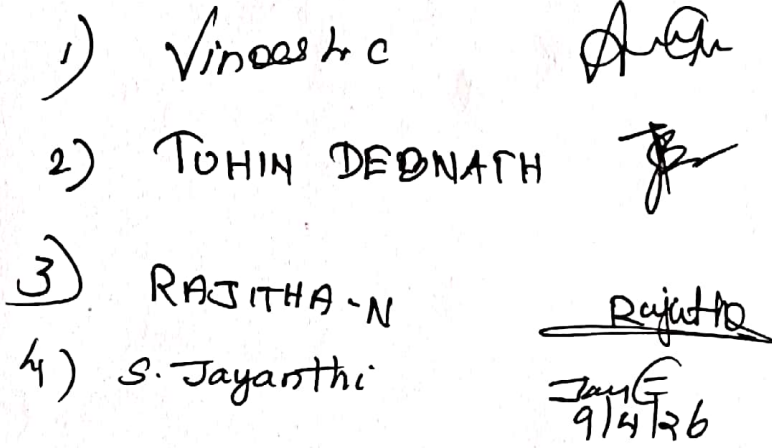 1) Vinoesh C
2) TOHIN DEBNATH
3) RAJITHA-N Rajitha
4) S. Jayanthi Jay
9/4/26